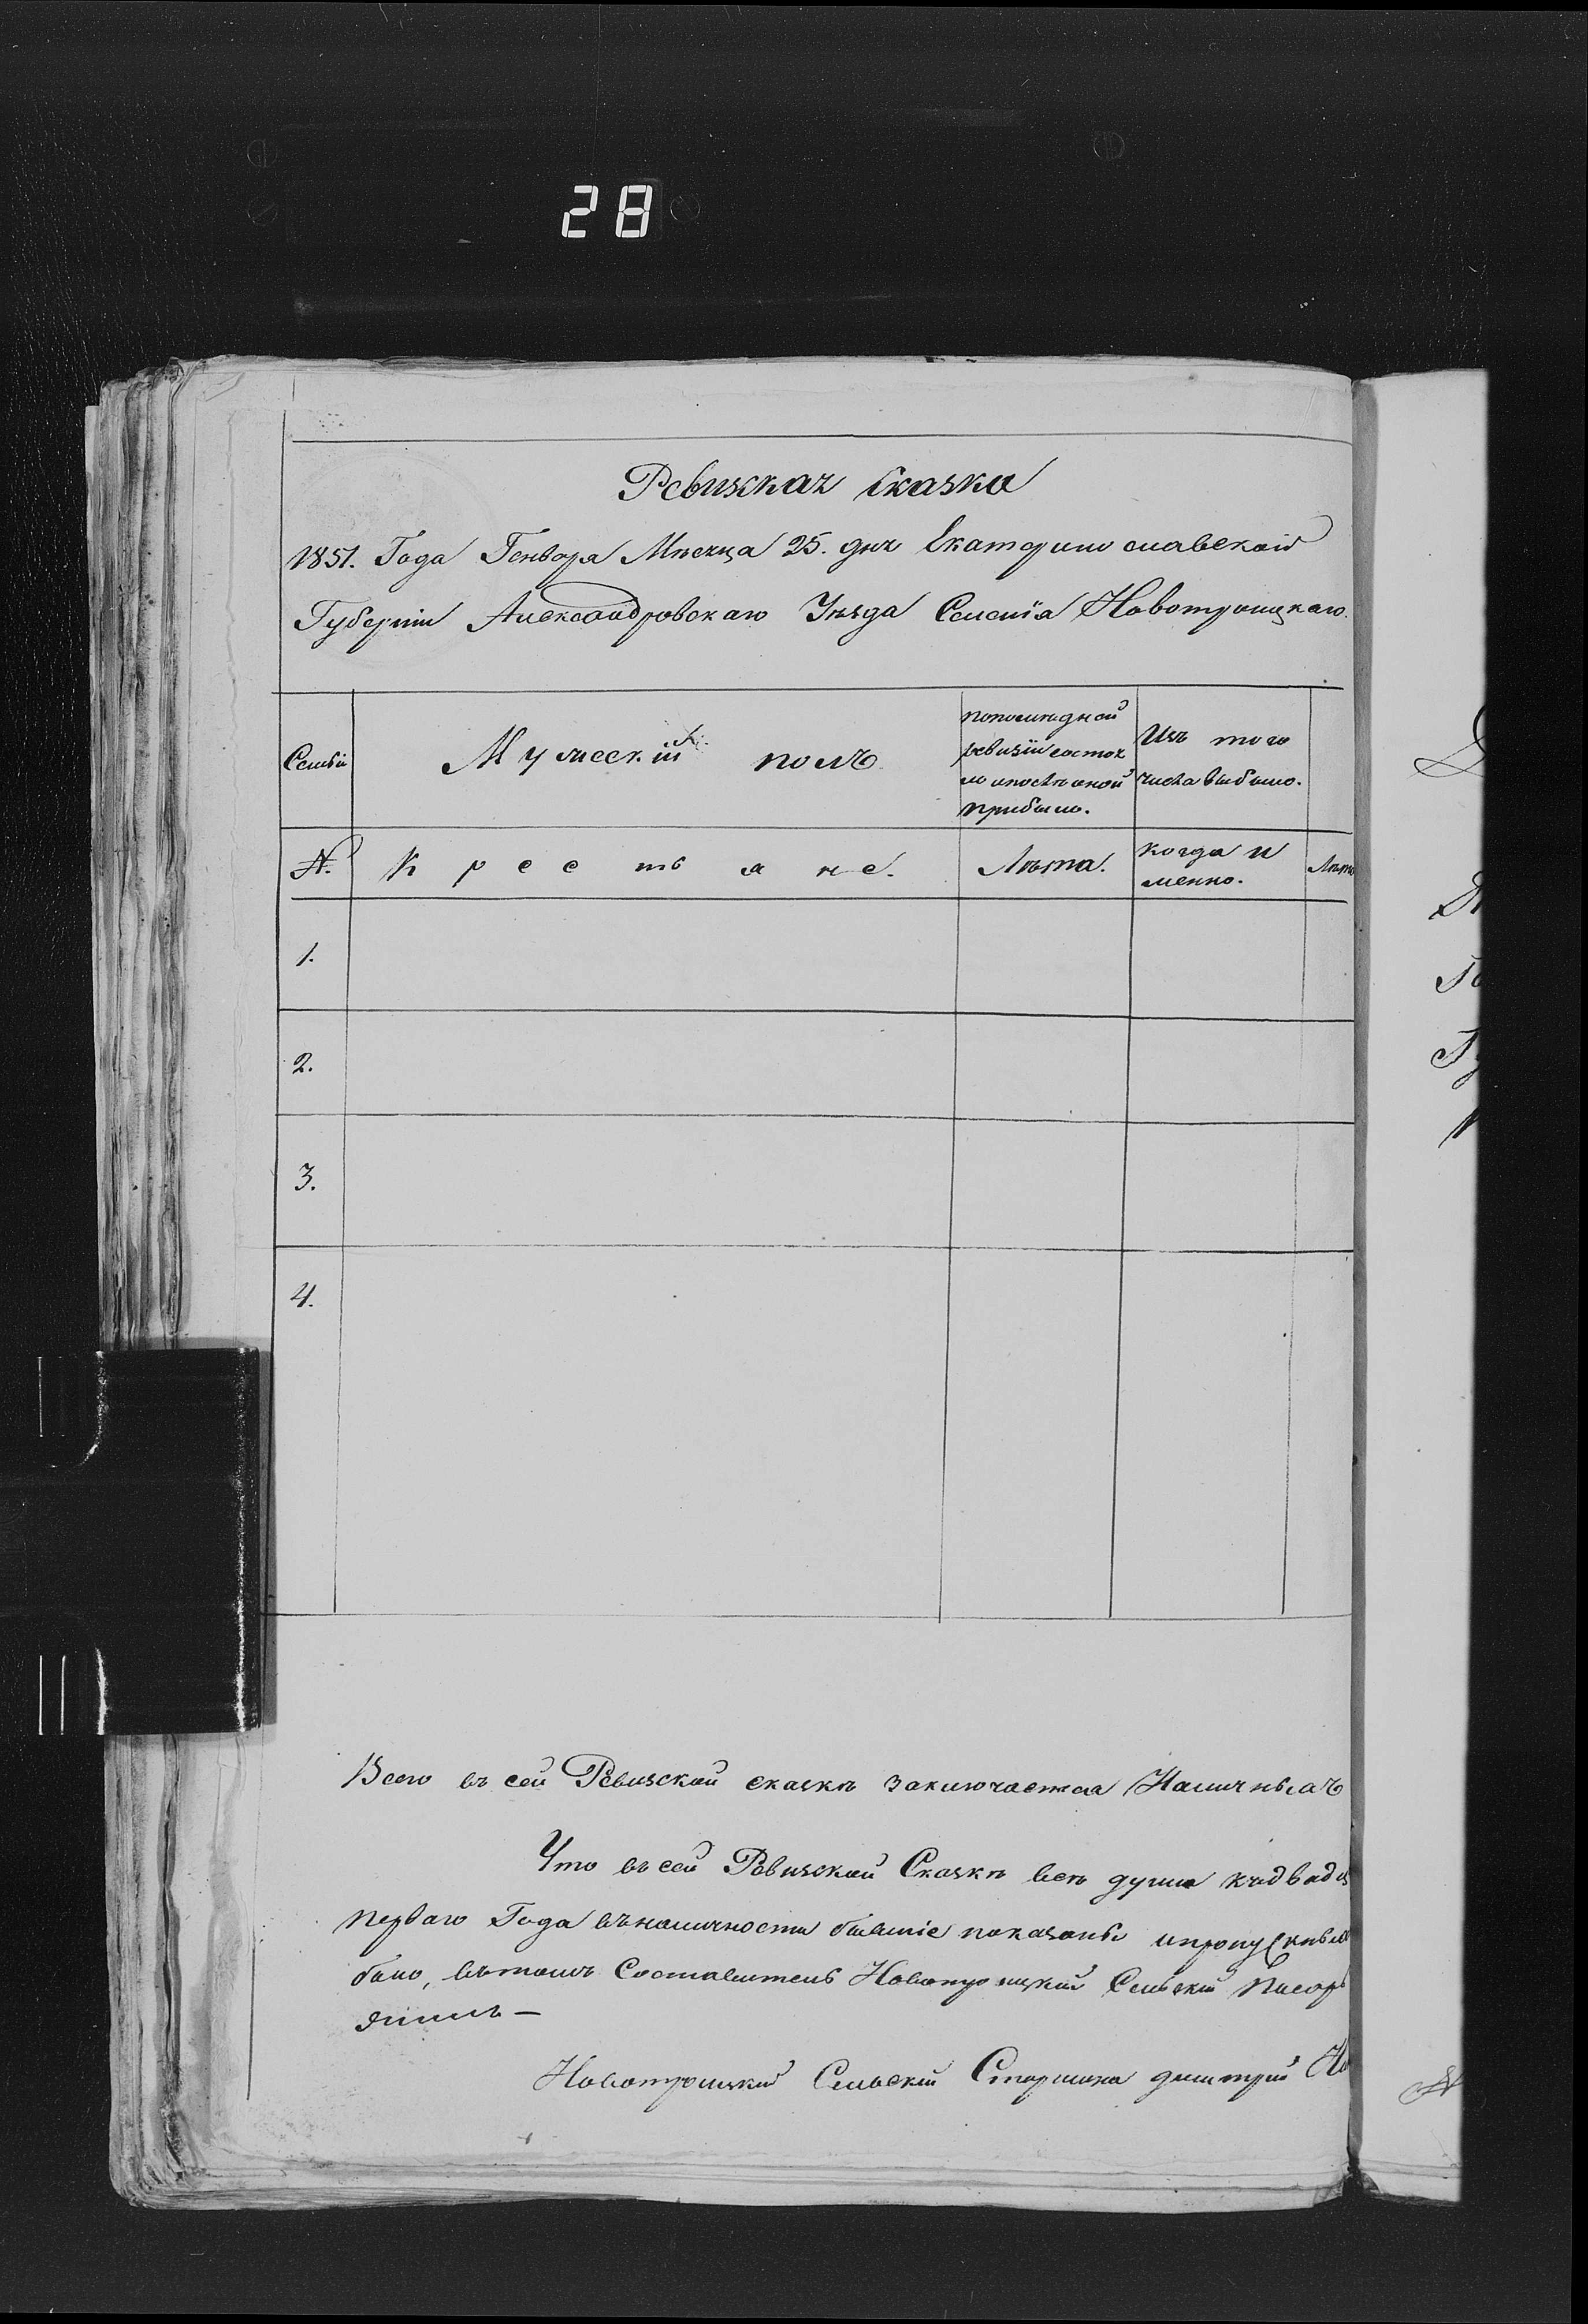 28
Ревизкая сказка
1851. Года Генворя Мѣсеца 25. дня Екатеринославской
Губерніи Александровскаго Уѣзда Селенія Новотроицкаго.
Семьи
Мужеский полъ
попослѣдней
ревизіи состоя
ло ипослѣ оной
прибыло.
Изъ того
числа выбыло.
№.
Крестьяне.
Лѣта.
когда и
менно.
Лѣта
1.
2.
3.
4.
Всего въ сей Ревизской сказкѣ заключается Наличныхъ
Что въ сей Ревизской Сказкѣ всѣ души къ двадц
перваго Года въ наличности бывшіе показаны и пропускных
бано, въ томъ Составитель Новотроицкій Сельскій Писарь
Новотроицкій Сельскій Старшина дмитрий Но